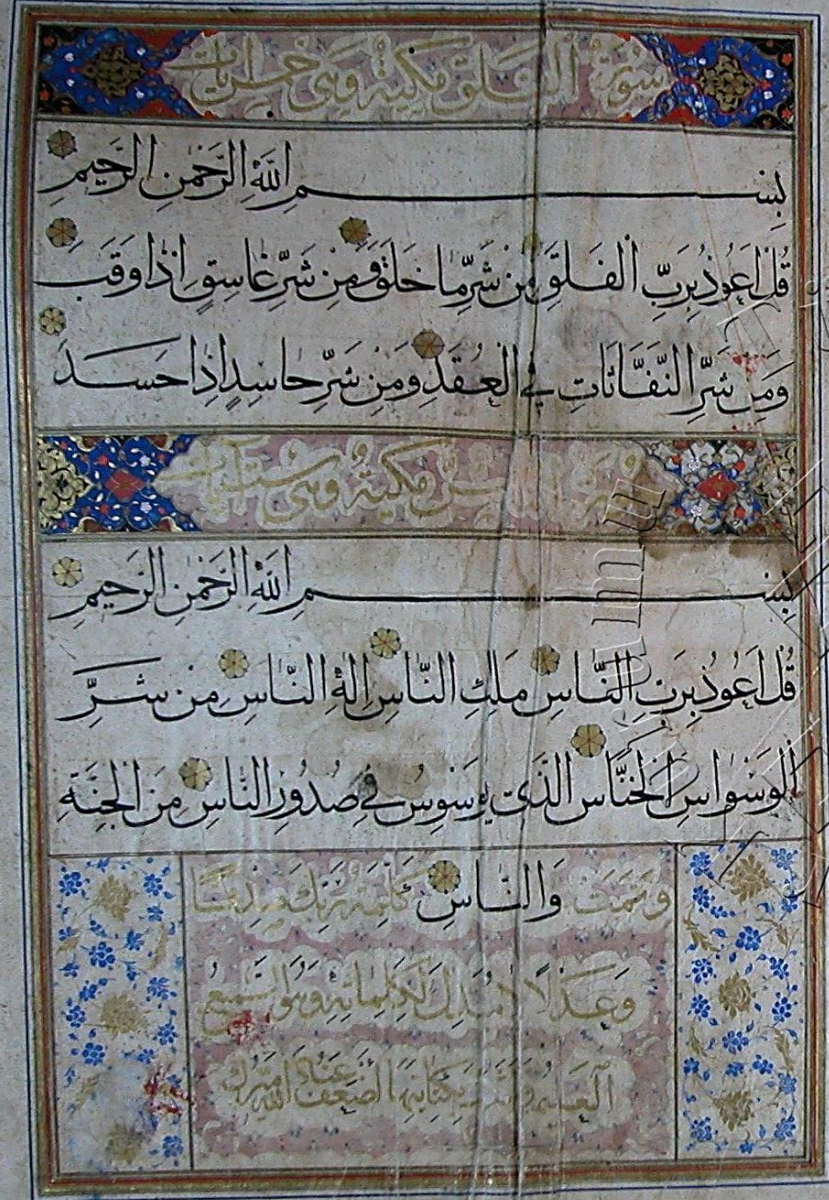 سورة الفلق مكية وهى خمس ايات
بِسْمِ اللَّهِ الرَّحْمٰنِ الرَّحِيمِ
قُلْ اَعُوذُ بِرَبِّ الْفَلَقِ مِنْ شَرِّ مَا خَلَقَ وَمِنْ شَرِّ غَاسِقٍ اِذَا وَقَبَ
وَمِنْ شَرِّ النَّفَّاثَاتِ فِي الْعُقَدِ وَمِنْ شَرِّ حَاسِدٍ اِذَا حَسَدَ
سورة الناس مكية وهى ست آيات
بِسْمِ اللَّهِ الرَّحْمٰنِ الرَّحِيمِ
قُلْ اَعُوذُ بِرَبِّ النَّاسِ مَلِكِ النَّاسِ اِلٰهِ النَّاسِ مِنْ شَرِّ
الْوَسْوَاسِ الْخَنَّاسِ الَّذِى يُوَسْوِسُ فِي صُدُورِ النَّاسِ مِنَ الْجِنَّةِ
وَتَمَّتْ وَالنَّاسِ كَلِمَةُ رَبِّكَ صِدْقًا
وَعَدْلًا لَا مُبَدِّلَ لِكَلِمَاتِهِ وَهُوَ السَّمِيعُ
الْعَلِيمُ بكتابتها اضعف عباد الله